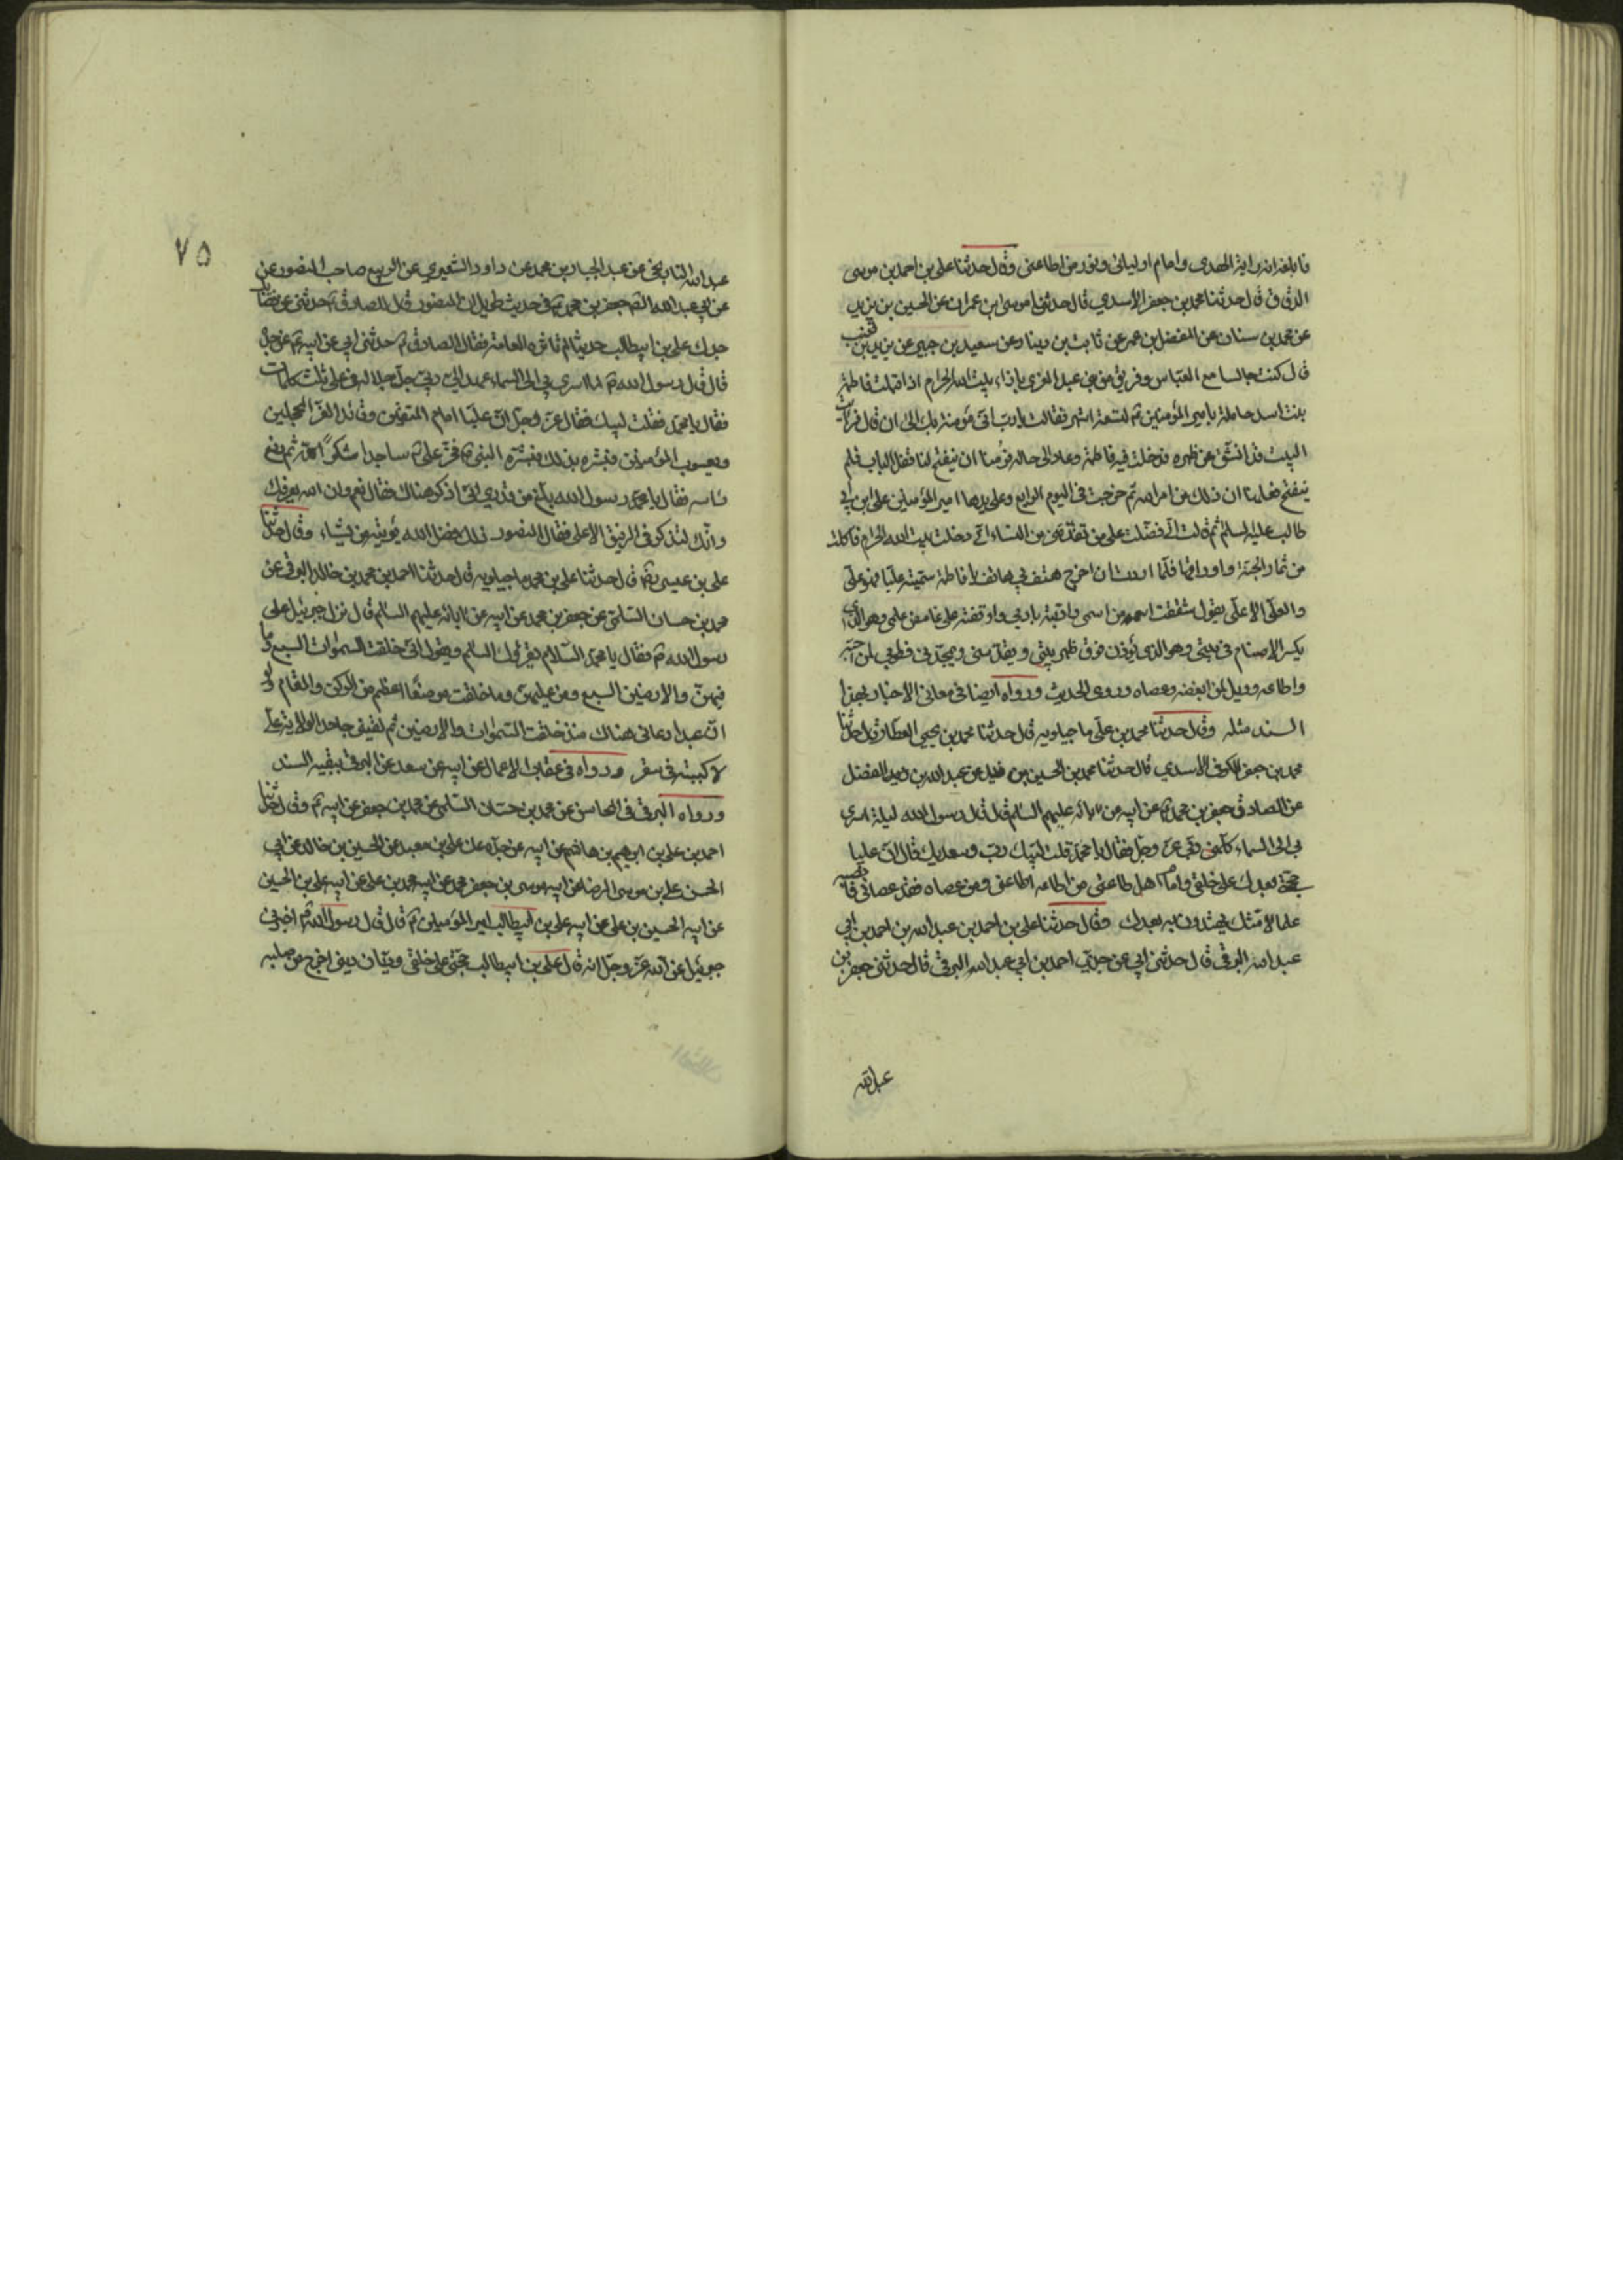 فابلغه انه راية الهدى وامام اوليائى ونور من اطاعنى وقال حدثنا على بن احمد بن موسى
الدقاق قال حدثنا محمد بن جعفر الاسدي قال حدثنا موسى ابن عمران عن الحسين بن يزيد
عن محمد بن سنان عن المفضل بن عمر عن ثابت بن دينار عن سعيد بن جبير عن يزيد بن قعنب
قال كنت جالسا مع العباس وفريق من بنى عبد العزى بازاء بيت الله الحرام اذ اقبلت فاطمة
بنت اسد حاملة بامير المؤمنين ع لتسعة اشهر فقالت يا رب انى مؤمنة بك الى ان قال فرايت
البيت قد انشق عن ظهره ودخلت فيه فاطمة وعاد الى حاله فرمنا ان ينفتح لنا قفل الباب فلم
ينفتح فعلمنا ان ذلك من امر الله ثم خرجت فى اليوم الرابع وعلى يدها امير المؤمنين على ابن ابى
طالب عليه السلم ثم قالت انى فضلت على من تقدمنى من النساء انى دخلت بيت الله الحرام فاكلت
من ثمار الجنة واوراقها فلما اردت ان اخرج هتف بي هاتف يا فاطمة سميه عليا فهو على
والعلى الاعلى يقول شققت اسمه من اسمى وادبته بادبي واوقفته على غامض علمى وهو الذى
يكسر الاصنام فى بيتى وهو الذى يؤذن فوق ظهر بيتى ويقدسنى ويمجدنى فطوبى لمن احبه
واطاعه وويل لمن ابغضه وعصاه وروى الحديث ورواه ايضا فى معانى الاخبار بهذا
السند مثله وقال حدثنا محمد بن على ماجيلويه قال حدثنا محمد بن يحيى العطار قال حدثنا
محمد بن جعفر الكوفى الاسدي قال حدثنا محمد بن الحسين بن عن عبد الله بن المفضل
عن الصادق جعفر بن محمد ع عن ابيه عن آبائه عليهم السلم قال قال رسول الله ليلة اسرى
بى الى السماء كلمنى ربى عز وجل فقال يا محمد قلت لبيك ربى وسعديك قال ان عليا
حجتى بعدك على خلقى وامام اهل طاعتى من اطاعه اطاعنى ومن عصاه فقد عصانى فانصبه
علما لامتك يهتدون به بعدك وقال حدثنا على بن احمد بن عبد الله بن احمد بن ابى
عبد الله البرقى قال حدثنى ابى عن جدى احمد بن ابى عبد الله البرقى قال حدثنى جعفر بن
عبد الله
٧٥
عبد الله عن عبد الجبار بن محمد عن داود الشعيرى عن الربيع صاحب المنصور عن
عن ابى عبد الله جعفر بن محمد ع فى حديث طويل ان المنصور قال للصادق ع حدثنى عن
جدك على بن ابيطالب حديثا لم تاثره العامة فقال الصادق ع حدثنى ابى عن ابيه ع عن جدى
قال قال رسول الله ع لما اسرى بى الى السماء عهد الى ربى جل جلاله فى على ثلث كلمات
فقال يا محمد فقلت لبيك فقال عز وجل ان عليا امام المتقين وقائد الغر المحجلين
ويعسوب المؤمنين فبشره بذلك فبشره النبى ع فخر على ع ساجدا شكرا لله ثم رفع
راسه فقال يا رسول الله بلغ من قدرى انى اذكر هناك فقال نعم وان الله يعرفك
وانك لتذكر فى الرفيق الاعلى فقال المنصور ذلك فضل الله يؤتيه من يشاء وقال حدثنا
على بن عيسى قال حدثنا على بن محمد ماجيلويه قال حدثنا احمد بن محمد بن خالد البرقى عن
محمد بن حسان السلمى عن جعفر بن محمد عن ابيه عن آبائه عليهم السلم قال نزل جبرئيل على
رسول الله ع فقال يا محمد السلام يقرئك السلم ويقول انى خلقت السموات السبع وما
فيهن والارضين السبع ومن عليهن وما خلقت موضعا اعظم من الركن والمقام ولو
ان عبدا دعانى هناك منذ خلقت السموات والارضين ثم لقينى جاحدا لولاية على
لاكببته فى سقر ورواه فى عقاب الاعمال عن ابيه عن سعد عن البرقى ببقية السند
ورواه البرقى فى المحاسن عن محمد بن حسان السلمى عن محمد بن جعفر عن ابيه ع وقال حدثنا
احمد بن على بن ابرهيم بن هاشم عن ابيه عن جده عن على بن معبد عن الحسين بن خالد عن ابى
الحسن على بن موسى الرضا عن ابيه موسى بن جعفر عن ابيه محمد بن على عن ابيه على بن الحسين
عن ابيه الحسين بن على عن ابيه على بن ابيطالب امير المؤمنين ع قال قال رسول الله ع اخبرنى
جبرئيل عن الله عز وجل انه قال على بن ابيطالب حجتى على خلقى وديان دينى اخرج من صلبه